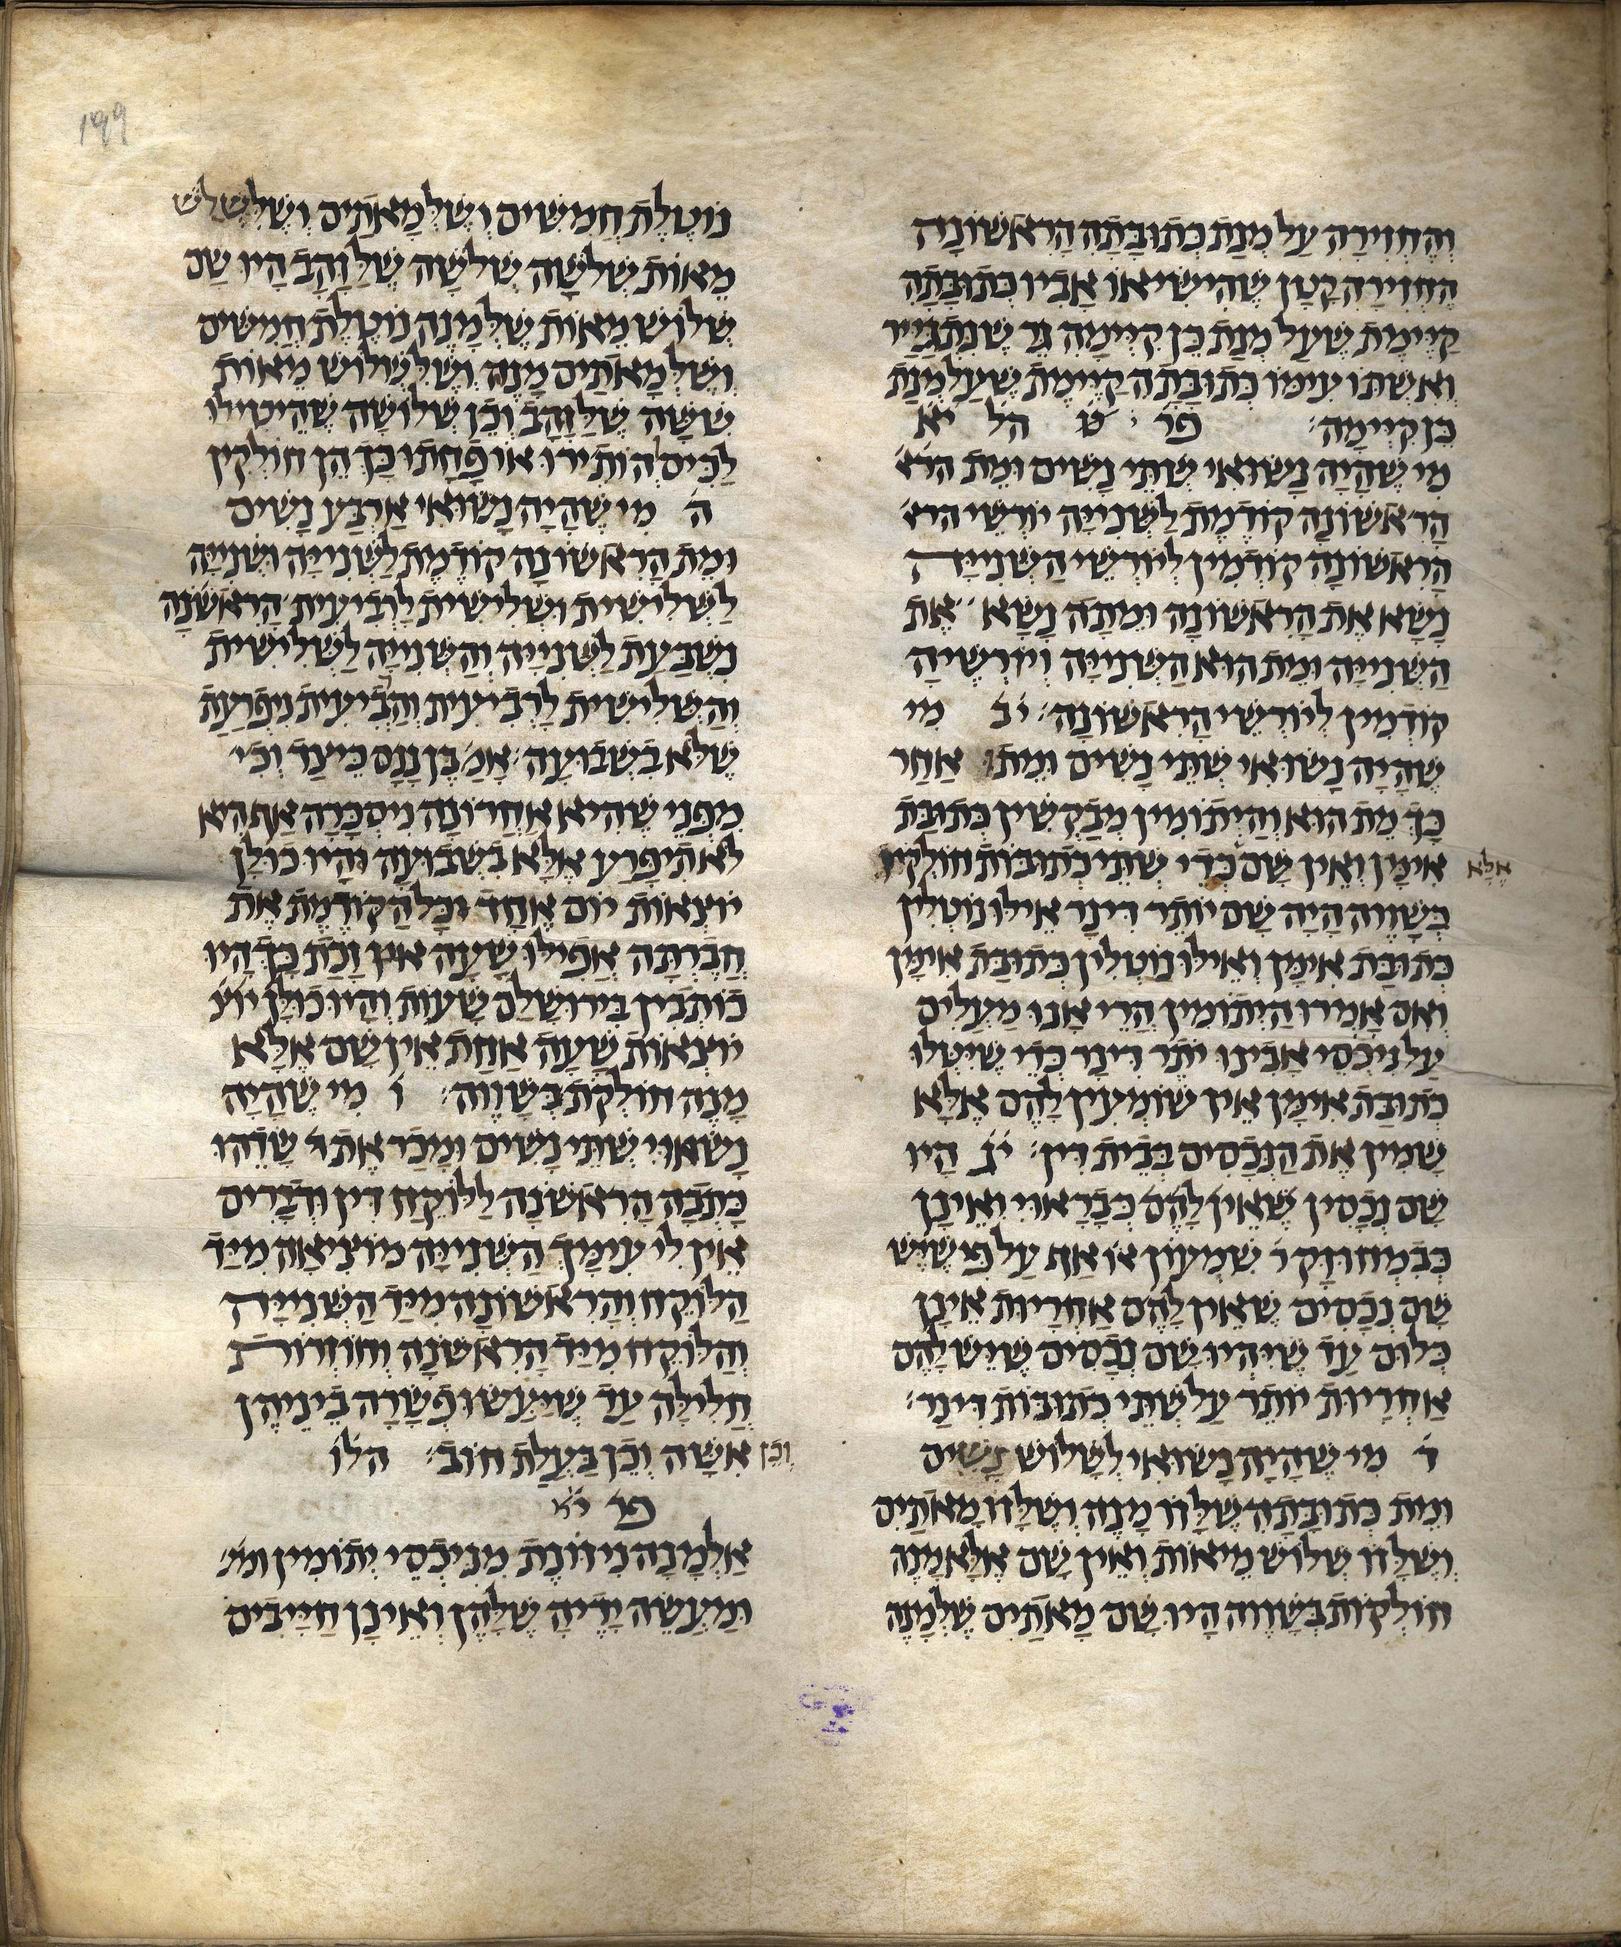 וְהֶחֱזִירָהּ עַל מְנָת כְּתוּבָּתָהּ הָרִאשׁוֹנָה
הֶחֱזִירָהּ קָטָן שֶׁהִישִּׂיאוֹ אָבִיו כְּתוּבָּתָהּ
קַיֶּימֶת שֶׁעַל מְנָת כֵּן קִיְּימָהּ גֵּר שֶׁנִּתְגַּיֵּיר
וְאִשְׁתּוֹ עִימּוֹ כְּתוּבָּתָהּ קַיֶּימֶת שֶׁעַל מְנָת
כֵּן קִיְּימָהּ׃ פר׳ ט׳ הל׳ יא
מִי שֶׁהָיָה נָשׂוּאִי שְׁתֵּי נָשִׁים וּמֵת הר׳
הָרִאשׁוֹנָה קוֹדֶמֶת לַשְּׁנִיָּיה יוֹרְשֵׁי הר׳
הָרִאשׁוֹנָה קוֹדְמִין לְיוֹרְשֵׁי הַשְּׁנִיָּיה
נָשָׂא אֶת הָרִאשׁוֹנָה וּמֵתָה נָשָׂא אֶת
הַשְּׁנִיָּיה וּמֵת הוּא הַשְּׁנִיָּיה וְיוֹרְשֶׁיהָ
קוֹדְמִין לְיוֹרְשֵׁי הָרִאשׁוֹנָה׃ ב׳ מִי
שֶׁהָיָה נָשׂוּאִי שְׁתֵּי נָשִׁים וּמֵתוּ אַחַר
כָּךְ מֵת הוּא וְהַיְּתוֹמִין מְבַקְשִׁין כְּתוּבַּת
אִימָּן וְאֵין שָׁם אֶלָּא כְּדֵי שְׁתֵּי כְתוּבּוֹת חוֹלְקִין
בְּשָׁוֶוה הָיָה שָׁם יוֹתֵר דִּינָר אֵילּוּ נוֹטְלִין
כְּתוּבַּת אִימָּן וְאֵילּוּ נוֹטְלִין כְּתוּבַּת אִימָּן
וְאִם אָמְרוּ הַיְתוֹמִין הֲרֵי אָנוּ מַעֲלִים
עַל נִיכְסֵי אָבִינוּ יֹתֵר דִּינָר כְּדֵי שֶׁיִּטְּלוּ
כְּתוּבַּת אִימָּן אֵין שׁוֹמְעִין לָהֶם אֶלָּא
שָׁמִין אֶת הַנְּכָסִים בְּבֵית דִּין׃ ג׳ הָיוּ
שָׁם נְכָסִין שֶׁאֵין לָהֶם כְּבָרָאוּי וְאֵינָן
כְּבַמְּחוּזָּק ר׳ שִׁמְעוֹן או׳ אַף עַל פִּי שֶׁיֵּשׁ
שָׁם נְכָסִים שֶׁאֵין לָהֶם אַחְרָיוּת אֵינָן
כְּלוּם עַד שֶׁיִּהְיוּ שָׁם נְכָסִים שֶׁיֵּשׁ לָהֶם
אַחְרָיוּת יוֹתֵר עַל שְׁתֵּי כְתוּבּוֹת דִּינָר׃
ד׳ מִי שֶׁהָיָה נָשׂוּאִי לְשָׁלוֹשׁ נָשִׁים
וּמֵת כְּתוּבָּתָהּ שֶׁלָּזוֹ מָנֶה וְשֶׁלָּזוֹ מָאתַיִם
וְשֶׁלָּזוֹ שְׁלוֹשׁ מֵיאוֹת וְאֵין שָׁם אֶלָּא מָנֶה
חוֹלְקוֹת בְּשָׁוֶוה הָיוּ שָׁם מָאתַיִם שֶׁלְּמָנֶה
נוֹטֶלֶת חֲמִשִּׁים וְשֶׁלְּמָאתַיִם וְשֶׁלִּשְׁלֹשׁ
מֵאוֹת שְׁלֹשָׁה שְׁלֹשָׁה שֶׁלַּזָּהָב הָיוּ שָׁם
שְׁלוֹשׁ מֵאוֹת שֶׁלְּמָנֶה נוֹטֶלֶת חֲמִשִּׁים
וְשֶׁלְּמָאתַיִם מָנֶה וְשֶׁלִּשְׁלוֹשׁ מֵאוֹת
שִׁשָּׁה שֶׁלַּזָּהָב וְכֵן שְׁלוֹשָׁה שֶׁהֵיטִילוּ
לַכִּיס הוֹתִירוּ אוֹ פָחֲתוּ כַּךְ הֵן חוֹלְקִין
ה׳ מִי שֶׁהָיָה נָשׂוּאִי אַרְבַּע נָשִׁים
וּמֵת הָרִאשׁוֹנָה קוֹדֶמֶת לַשְּׁנִיָּיה וּשְׁנִיָּיה
לַשְּׁלִישִׁית וּשְׁלִישִׁית לָרְבִיעִית הָרִאשֹׁנָה
נִשְׁבַּעַת לַשְּׁנִיָּיה וְהַשְּׁנִיָּיה לַשְּׁלִישִׁית
וְהַשְּׁלִישִׁית לָרְבִיעִית וְהָרְבִיעִית נִיפְרַעַת
שֶׁלֹּא בַשְּׁבוּעָה׃ אמ׳ בֶּן נַנָּס כֵּיצַד וְכִי
מִפְּנֵי שֶׁהִיא אַחֲרוֹנָה נִיסְכָּרָה אַף הִיא
לֹא תִיפָּרַע אֶלָּא בִשְׁבוּעָה הָיוּ כוּלָּן
יוֹצְאוֹת יוֹם אֶחָד וכָל הַקּוֹדֶמֶת אֶת
חֲבֶרְתָּהּ אֲפִילּוּ שָׁעָה אחת זָכַת כָּךְ הָיוּ
כוֹתְבִין בִּירוּשָׁלַם שָׁעוֹת וְהָיוּ כוּלָּן יוֹצ׳
יוֹצְאוֹת שָׁעָה אַחַת אֵין שָׁם אֶלָּא
מָנֶה חוֹלְקֹת בְּשָׁוֶוה׃ ו׳ מִי שֶׁהָיָה
נָשׂאוּי שְׁתֵּי נָשִׁים וּמָכַר אֶת שָׂדֵהוּ
כָּתְבָה הָרִאשֹׁנָה לַלּוֹקֵחַ דִּין וּדְבָרִים
אֵין לִי עִימָּךְ הַשְּׁנִיָּיה מוֹצִיאָהּ מִיַּד
הַלּוֹקֵחַ וְהָרִאשׁוֹנָה מִיַּד הַשְּׁנִיָּיה
וְהַלּוֹקֵחַ מִיַּד הָרִאשֹׁנָה וְחוֹזְרוֹת
חֲלִילָה עַד שֶׁיַּעֲשׂוּ פְשָׁרָה בֵינֵיהֶן
וְכֵן אִשָּׁה וְכֵן בַּעֲלַת חוֹב׃ הל׳ ו׳
פר׳ י׳א
אַלְמָנָה נִיזּוֹנֶת מִנִּיכְסֵי יְתוֹמִין
וּמַעֲשֵׂה יָדֶיהָ שֶׁלָּהֶן וְאֵינָן חַיָּיבִים
199